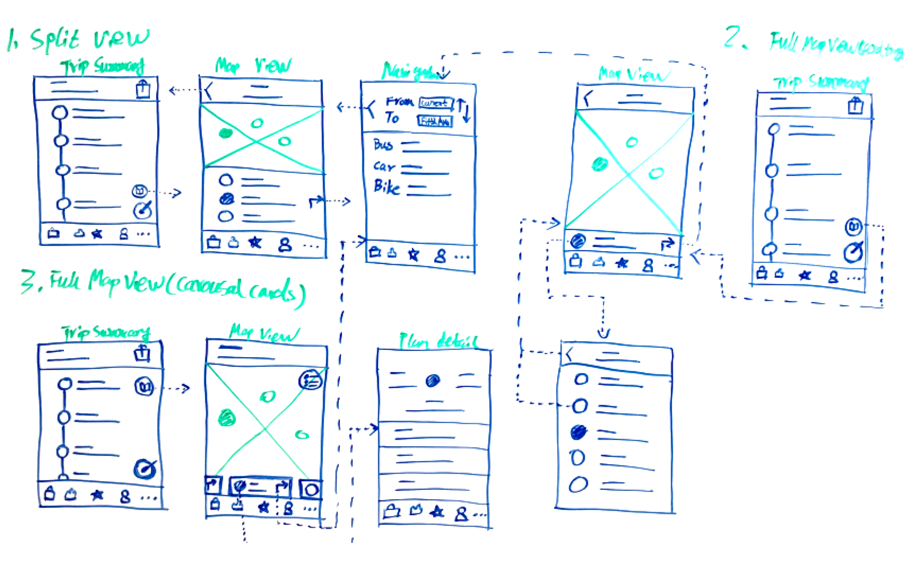 1. Split view
Trip Summary
Map View
Navigation
From Current
To
Bus
Car
Bike
Map View
2. Full Map View
Trip Summary
3. Full Map View (carousal cards)
Trip Summary
Map View
Plan detail